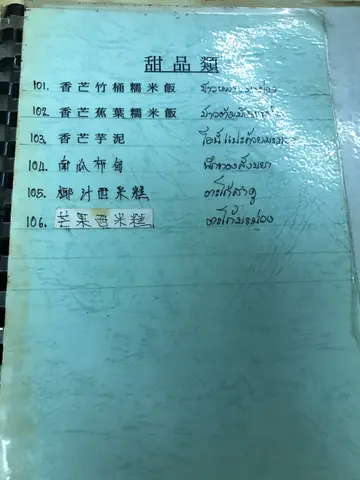 甜品類
101. 香芒竹桶糯米飯
102 香芒蕉葉糯米飯
103, 香芒芋泥
104. 南瓜布甸 ฟักทองสังขยา
105. 椰汁西米糕 ตะโก้สาคู
106. 芒果西米糕 ตะโก้มะม่วง